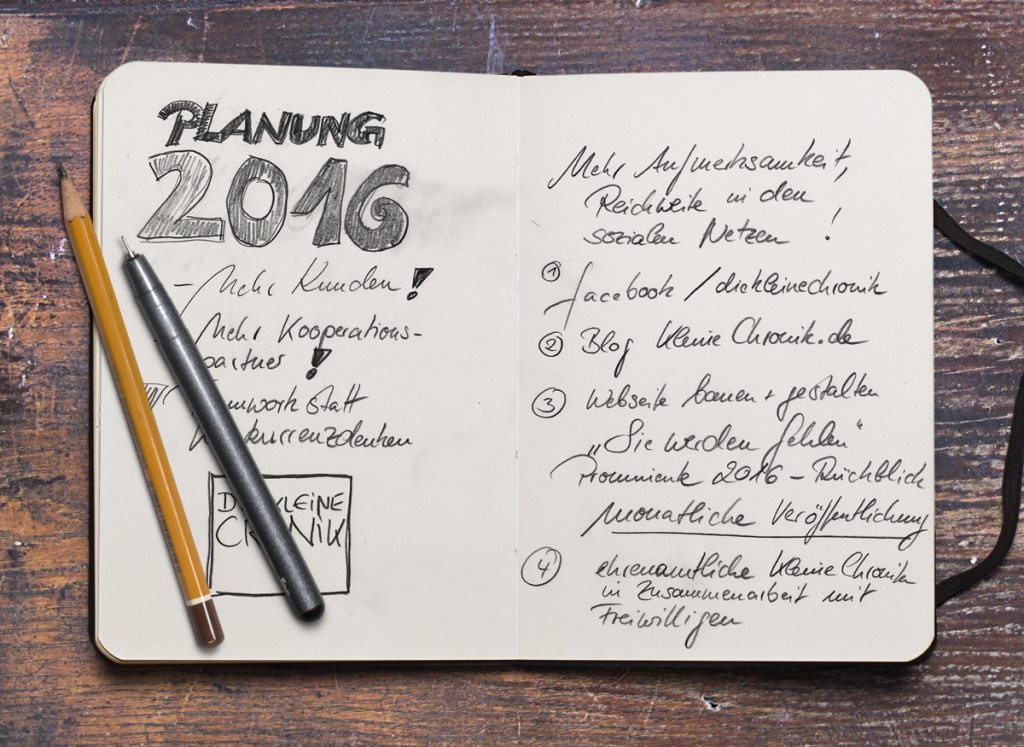 PLANUNG
2016
– Mehr Kunden!
Mehr Kooperations-
partner!
Teamwork statt
Konkurrenzdenken
DIE KLEINE
CHRONIK
Mehr Aufmerksamkeit,
Reichweite in den
sozialen Netzen !
1 facebook /diekleinechronik
2 Blog kleine Chronik.de
3 Webseite bauen + gestalten
„Sie werden fehlen“
Prominente 2016 – Rückblick
monatliche Veröffentlichung
4 ehrenamtliche kleine Chronik
in Zusammenarbeit mit
Freiwilligen